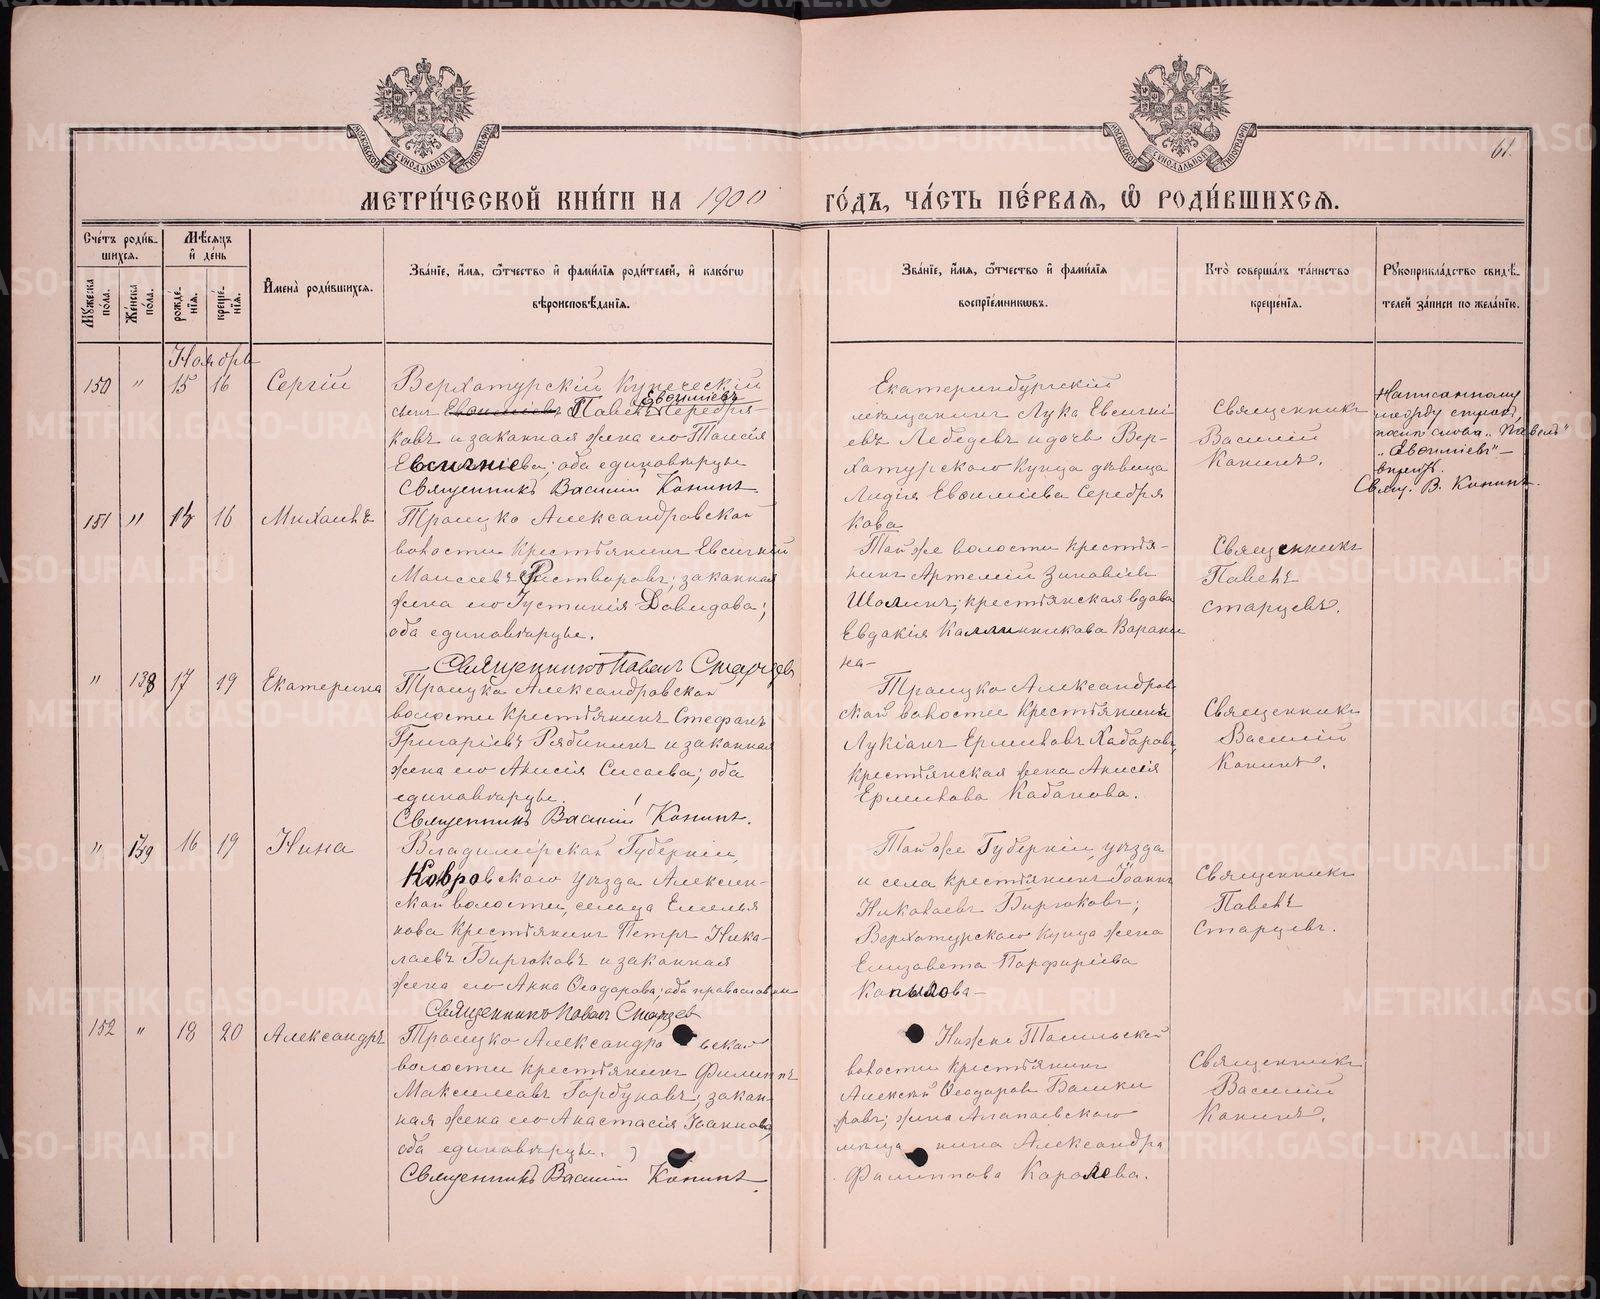 61.
МЕТРИ́ЧЕСКОЙ КНИ́ГИ НА 1900 ГО́ДЪ, ЧА́СТЬ ПЕ́РВАЯ, Ѽ РОДИ́ВШИХСЯ.
Сче́тъ роди́в-
шихся.
Мѣ́сяцъ
и҆ де́нь
Му́жеска
по́ла.
Же́нска
по́ла.
рожде́-
нїя.
креще́-
нїя.
И҆мена̀ роди́вшихся.
Зва́нїе, и҆́мя, ѻ҆́тчество и҆ фами́лїя роди́телей, и҆ како́гѡ
вѣроисповѣ́данїя.
Зва́нїе, и҆́мя, ѻ҆́тчество и҆ фами́лїя
воспрїе́мникѡвъ.
Кто̀ соверша́лъ та́инство
креще́нїя.
Рꙋкоприкла́дство свидѣ́-
телей за́писи по жела́нїю.
Ноябрь
150 " 15 16 Сергій
Верхотурскій Купеческій
сынъ Евѳиміевъ Павелъ Евѳиміевъ Серебря-
ковъ и законная жена его Таисія
Евсигніева; оба единовѣрцы
Священникъ Василій Конинъ.
Екатеринбургскій
мѣщанинъ Лука Евсигні
евъ Лебедевъ и дочь Вер-
хотурскаго Купца дѣвица
Лидія Евѳиміева Серебря
кова
Священникъ
Василій
Конинъ.
Написанному
между строкъ,
послѣ слова „Павелъ"
„Евѳиміевъ" –
вѣрить.
Свящ. В. Конинъ.
151 " 15 16 Михаилъ
Троицко Александровской
волости крестьянинъ Евсигній
Моисеевъ Растворовъ; законная
жена его Іустинія Давидова;
оба единовѣрцы.
Священникъ Павелъ Старцевъ
Той же волости крестья-
нинъ Артемій Зиновіевъ
Шолинъ; крестьянская вдова
Евдокія Каллинникова Ворони
на–
Священникъ
Павелъ
Старцевъ.
" 138 17 19 Екатерина
Троицко Александровской
волости крестьянинъ Стефанъ
Григоріевъ Рябининъ и законная
жена его Анисія Сысоева; оба
единовѣрцы.
Священникъ Василій Конинъ.
Троицко Александров
ской волости крестьянинъ
Лукіанъ Ермиловъ Хабаровъ,
крестьянская жена Анисія
Ермилова Кабанова.
Священникъ
Василій
Конинъ.
" 139 16 19 Нина
Владимірской Губерніи,
Ковровскаго уѣзда Алексин-
ской волости, сельца Емелья
нова крестьянинъ Петръ Нико-
лаевъ Бирюковъ и законная
жена его Анна Ѳеодорова; оба православные
Священникъ Павелъ Старцев
Той же Губерніи, уѣзда
и села крестьянинъ Іоаннъ
Николаевъ Бирюковъ;
Верхотурскаго купца жена
Елизавета Порфиріева
Копылова–
Священникъ
Павелъ
Старцевъ.
152 " 18 20 Александръ
Троицко Александровской
волости крестьянинъ Филиппъ
Максимовъ Горбуновъ; закон-
ная жена его Анастасія Іоаннова,
оба единовѣрцы.
Священникъ Василій Конинъ.
Нижне Тагильской
волости крестьянинъ
Алексѣй Ѳеодоровъ Башки
ровъ; жена Алапаевскаго
мѣщанина Александра
Филиппова Королева.
Священникъ
Василій
Конинъ.
METRIKI.GASO-URAL.RU